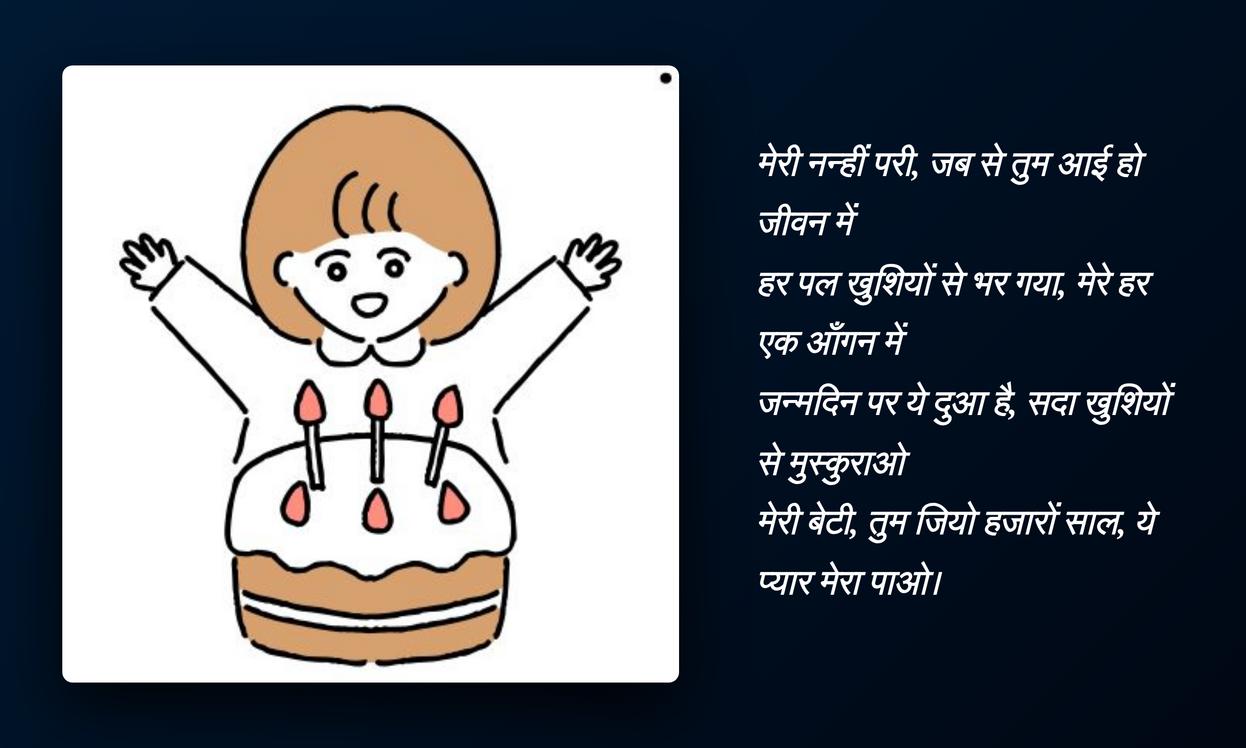 मेरी नन्हीं परी, जब से तुम आई हो
जीवन में
हर पल खुशियों से भर गया, मेरे हर
एक आँगन में
जन्मदिन पर ये दुआ है, सदा खुशियों
से मुस्कुराओ
मेरी बेटी, तुम जियो हजारों साल, ये
प्यार मेरा पाओ।